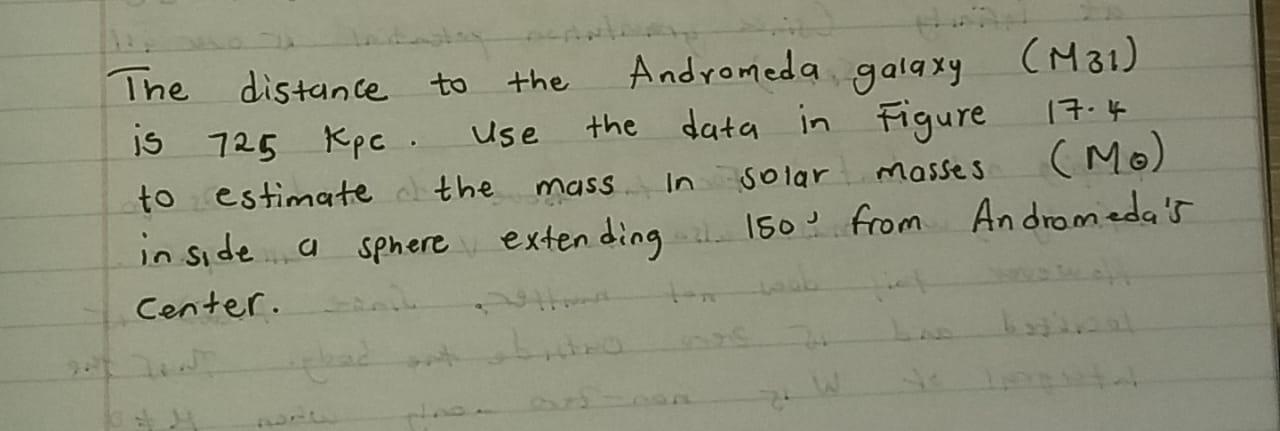 The distance to the Andromeda galaxy (M31)
is 725 Kpc. Use the data in Figure 17.4
to estimate the mass in solar masses (M⊙)
inside a sphere extending 150' from Andromeda's
Center.